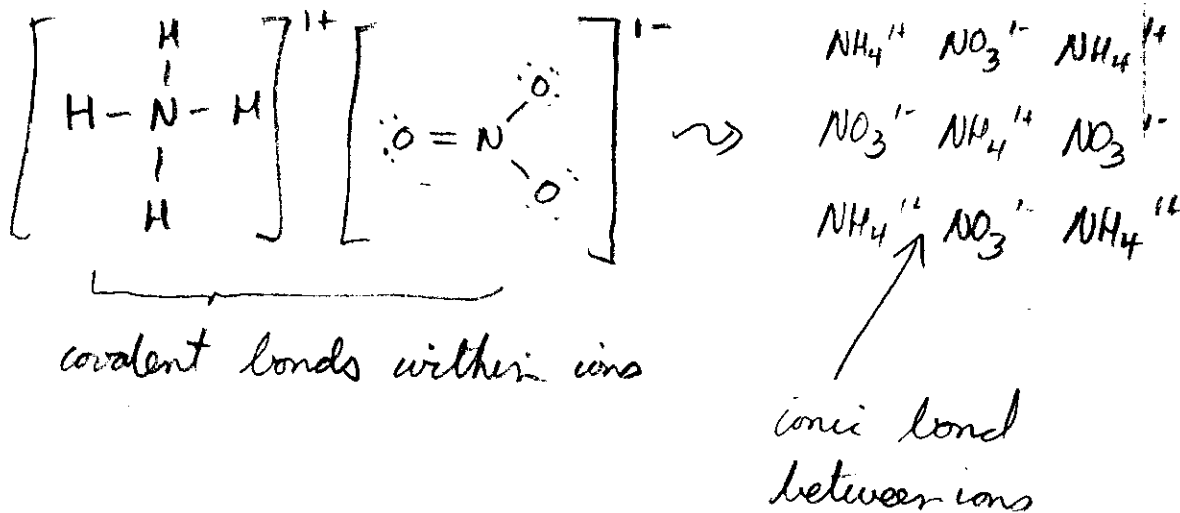 H
H – N – H
H
1+
O = N
O
O
1-
NH₄¹⁺ NO₃¹⁻ NH₄¹⁺
NO₃¹⁻ NH₄¹⁺ NO₃¹⁻
NH₄¹⁺ NO₃¹⁻ NH₄¹⁺
covalent bonds within ions
ionic bond
between ions